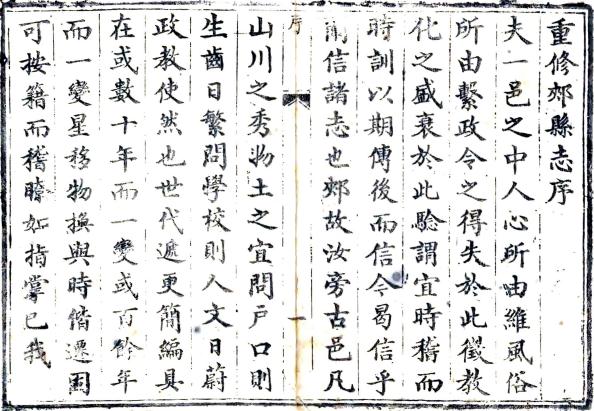 重修郟縣志序
夫一邑之中人心所由維風俗
所由繫政令之得失於此徵教
化之盛衰於此驗謂宜時稽而
時訓以期傳後而信今曷信乎
爾信諸志也郟故汝旁古邑凡
序
一
山川之秀物土之宜問戶口則
生齒日繁問學校則人文日蔚
政教使然也世代遞更簡編具
在或數十年而一變或百餘年
而一變星移物換與時偕遷固
可按籍而稽瞭如指掌已我